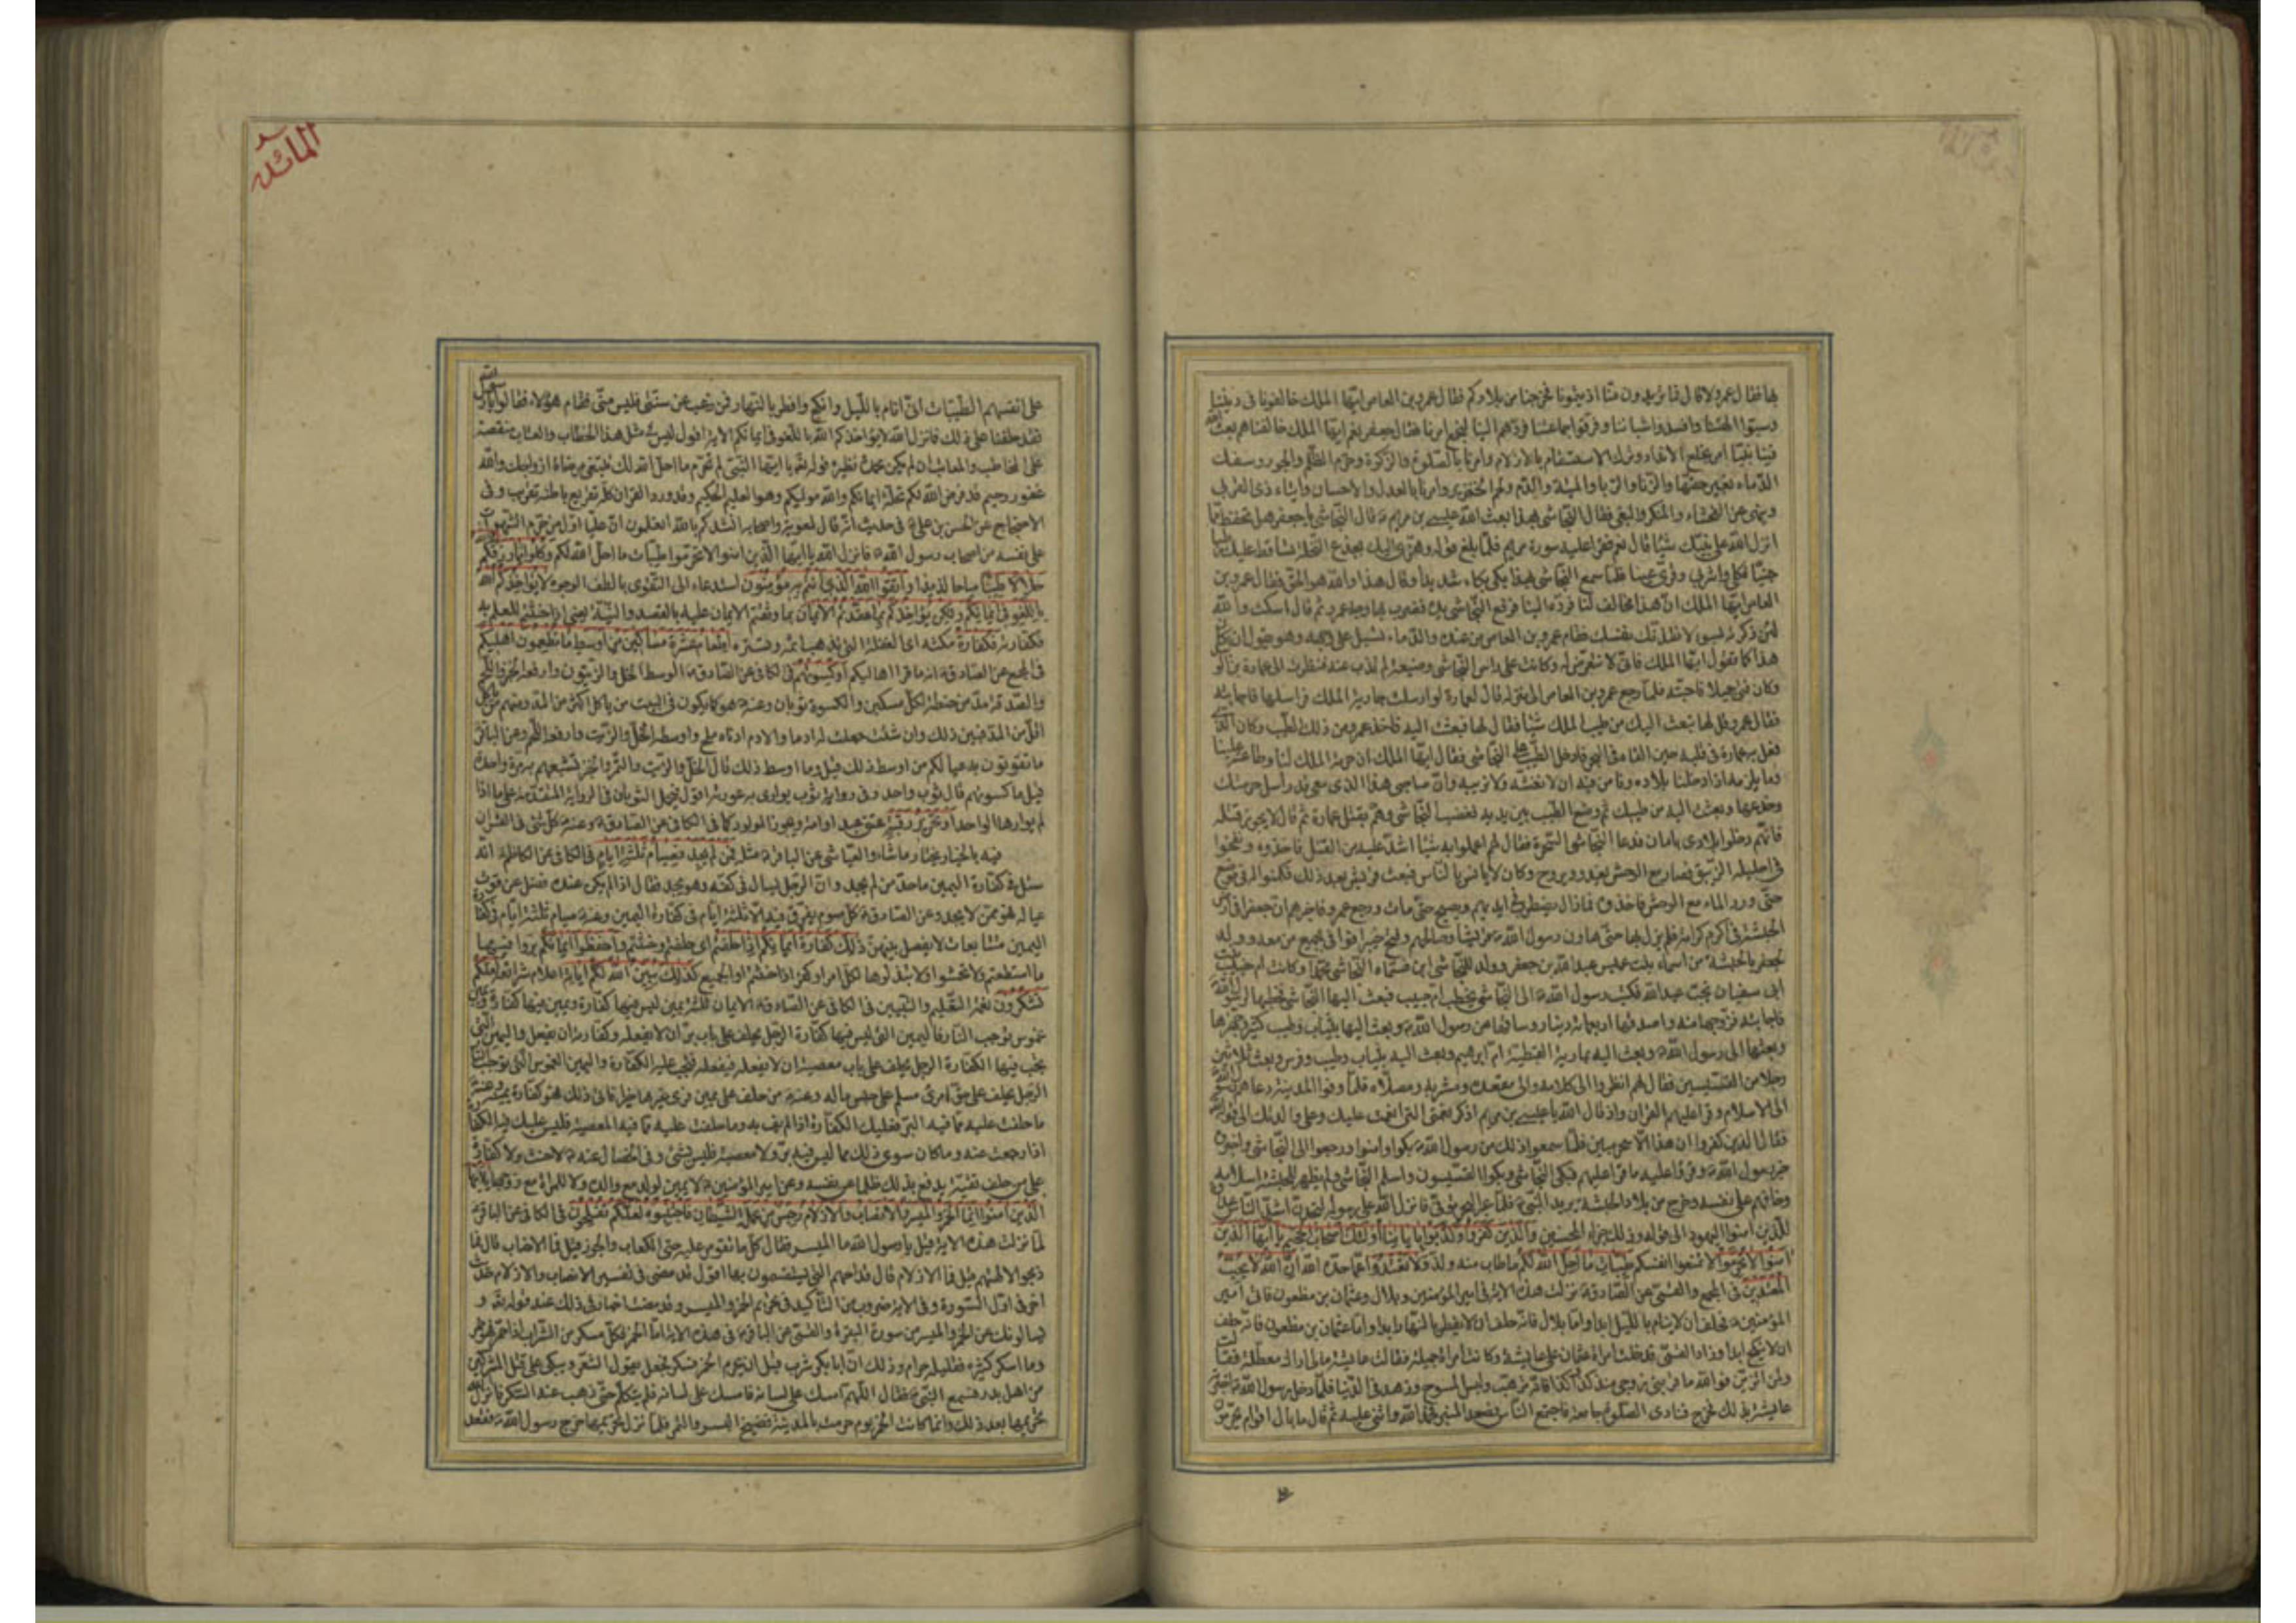 بها فقال عمرو لا قال فما تريدون منا اذيتمونا فخرجنا من بلادكم فقال عمرو بن العاص ايها الملك خالفونا فى ديننا
وسبوا الهتنا وافسدوا شباننا وفرقوا جماعتنا فردهم الينا لنجمع امرنا فقال جعفر نعم ايها الملك خالفناهم بعث الله
فينا نبيا امر بخلع الانداد وترك الاستقسام بالازلام وامرنا بالصلوة والزكوة وحرم الظلم والجور وسفك
الدماء بغير حقها والزنا والربا والميتة والدم ولحم الخنزير وامرنا بالعدل والاحسان وايتاء ذى القربى
وينهى عن الفحشاء والمنكر والبغى فقال النجاشى بهذا بعث الله عيسى بن مريم ثم قال النجاشى يا جعفر هل تحفظ مما
انزل الله على نبيك شيئا قال نعم فقرا عليه سورة مريم فلما بلغ قوله وهزى اليك بجذع النخلة تساقط عليك رطبا
جنيا فكلى واشربى وقرى عينا فلما سمع النجاشى بهذا بكى بكاء شديدا وقال هذا والله هو الحق فقال عمرو بن
العاص ايها الملك ان هذا مخالف لنا فرده الينا فرفع النجاشى يده فضرب بها وجه عمرو ثم قال اسكت والله
لئن ذكرته بسوء لافقدنك نفسك فقام عمرو بن العاص من عنده والدماء تسيل على وجهه وهو يقول ان كان
هذا كما تقول ايها الملك فانا لا نتعرض له وكانت على راس النجاشى وصيفة له تذب عنه فنظرت الى عمارة بن الوليد
وكان فتى جميلا فاحبته فلما رجع عمرو بن العاص الى منزله قال لعمارة لو راسلت جارية الملك فراسلها فاجابته
فقال عمرو قل لها تبعث اليك من طيب الملك شيئا فقال لها فبعثت اليه فاخذ عمرو من ذلك الطيب وكان الذى
فعل به عمارة فى قلبه حين القاه فى البحر فادخل الطيب على النجاشى فقال ايها الملك ان حرمة الملك لنا وطاعته علينا
وما يلزمنا اذا دخلنا بلاده ونامن فيه ان لا نغشه ولا نريبه وان صاحبى هذا الذى معى قد راسل حرمتك
وخدعها وبعثت اليه من طيبك ثم وضع الطيب بين يديه فغضب النجاشى وهم بقتل عمارة ثم قال لا يجوز قتله
فانهم دخلوا بلادى بامان فدعا النجاشى السحرة فقال لهم اعملوا به شيئا اشد عليه من القتل فاخذوه ونفخوا
فى احليله الزيبق فصار مع الوحش يغدو ويروح وكان لا يانس بالناس فبعث قريش بعد ذلك فكمنوا له فى موضع
حتى ورد الماء مع الوحش فاخذوه فمازال يضطرب فى ايديهم ويصيح حتى مات ورجع عمرو فاخبرهم ان جعفرا فى ارض
الحبشة فى اكرم كرامة فلم يزل بها حتى هادن رسول الله قريشا وصالحهم وفتح خيبر فوافى بجميع من معه وولد
لجعفر بالحبشة من اسماء بنت عميس عبد الله بن جعفر وولد للنجاشى ابن فسماه النجاشى محمدا وكانت ام حبيب بنت
ابى سفيان تحت عبد الله فكتب رسول الله الى النجاشى يخطب ام حبيب فبعث اليها النجاشى فخطبها لرسول الله
فاجابته فزوجها منه واصدقها اربعمائة دينار وساقها عن رسول الله وبعث اليها بثياب وطيب كثير وجهزها
وبعثها الى رسول الله وبعث اليه بمارية القبطية ام ابرهيم وبعث اليه بثياب وطيب وفرس وبعث ثلاثين
رجلا من القسيسين فقال لهم انظروا الى كلامه والى مقعده ومشربه ومصلاه فلما وافوا المدينة دعاهم رسول الله
الى الاسلام وقرا عليهم القران واذ قال الله يا عيسى بن مريم اذكر نعمتى التى انعمت عليك وعلى والدتك الى قوله
فقال الذين كفروا ان هذا الا سحر مبين فلما سمعوا ذلك من رسول الله بكوا وامنوا ورجعوا الى النجاشى واخبروه
خبر رسول الله وقرؤا عليه ما قرا عليهم فبكى النجاشى وبكوا القسيسون واسلم النجاشى ولم يظهر للحبشة اسلامه
وخافهم على نفسه وخرج من بلاد الحبشة يريد النبى فلما عبر البحر توفى فانزل الله على رسوله لتجدن اشد الناس عداوة
للذين امنوا اليهود الى قوله وذلك جزاء المحسنين والذين كفروا وكذبوا باياتنا اولئك اصحاب الجحيم يا ايها الذين
امنوا لا تحرموا لا تمنعوا انفسكم طيبات ما احل الله لكم ما طاب منه ولذ ولا تعتدوا عما حد الله ان الله لا يحب
المعتدين فى المجمع والقمى عن الصادق نزلت هذه الاية فى امير المؤمنين وبلال وعثمان بن مظعون فاما امير
المؤمنين فحلف ان لا ينام بالليل ابدا واما بلال فانه حلف ان لا يفطر بالنهار ابدا واما عثمان بن مظعون فانه حلف
ان لا ينكح ابدا وزاد القمى فدخلت امراة عثمان على عايشة وكانت امراة جميلة فقالت عايشة مالى اراك معطلة فقالت
ولمن اتزين فو الله ما قربنى زوجى منذ كذا وكذا فانه ترهب ولبس المسوح وزهد فى الدنيا فلما دخل رسول الله اخبرته
عايشة بذلك فخرج فنادى الصلوة جامعة فاجتمع الناس فصعد المنبر فحمد الله واثنى عليه ثم قال ما بال اقوام يحرمون
المائدة
على انفسهم الطيبات انى انام بالليل وانكح وافطر بالنهار فمن رغب عن سنتى فليس منى فقام هؤلاء فقالوا يا رسول الله
فقد حلفنا على ذلك فانزل الله لا يؤاخذكم الله باللغو فى ايمانكم الاية اقول ليس مثل هذا الخطاب والعتاب منقصة
على المخاطب والمعاتب ان لم يكن محمدة نظيره قوله تعالى يا ايها النبى لم تحرم ما احل الله لك تبتغى مرضاة ازواجك والله
غفور رحيم قد فرض الله لكم تحلة ايمانكم والله موليكم وهو العليم الحكيم وقد ورد القران كله تقريع باطنه تقريب وفى
الاحتجاج عن الحسن بن على فى حديث انه قال لمعوية واصحابه انشدكم بالله اتعلمون ان عليا اول من حرم الشهوات
على نفسه من اصحاب رسول الله فانزل الله يا ايها الذين امنوا لا تحرموا طيبات ما احل الله لكم وكلوا مما رزقكم الله
حلالا طيبا مباحا لذيذا واتقوا الله الذى انتم به مؤمنون استدعاء الى التقوى بالطف الوجوه لا يؤاخذكم الله
باللغو فى ايمانكم ولكن يؤاخذكم بما عقدتم الايمان بما وثقتم الايمان عليه بالقصد والنية يعنى اذا حنثتم للعلم به
فكفارته فكفارة نكثه اى الفعلة التى تذهب اثمه وتستره اطعام عشرة مساكين من اوسط ما تطعمون اهليكم
فى المجمع عن الصادق انه ما قرا اهاليكم او كسوتهم فى الكافى عن الصادق الوسط الخل والزيتون وارفعه الخبز واللحم
والصدقة مد من حنطة لكل مسكين والكسوة ثوبان وعنه هو كما يكون فى البيت من ياكل اكثر من المد ومنهم من ياكل
اقل من المد فبين ذلك وان شئت جعلت لهم ادما والادم ادناه ملح واوسطه الخل والزيت وارفعه اللحم وعن الباقر
ما تقوتون به عيالكم من اوسط ذلك قيل وما اوسط ذلك قال الخل والزيت والتمر والخبز تشبعهم به مرة واحدة
قيل ما كسوتهم قال ثوب واحد وفى رواية ثوب يوارى به عورته اقول يحمل الثوبان فى الرواية المتقدمة على ما اذا
لم يوارها الواحد او تحرير رقبة عتق عبد او امة ويجوز المولود كما فى الكافى عن الصادق وعنه كل شئ فى القران
فيه بالخيار يختار ما شاء والعياشى عن الباقر مثله فمن لم يجد فصيام ثلثة ايام فى الكافى عن الكاظم انه
سئل فى كفارة اليمين ماحد من لم يجد وان الرجل ليسال فى كفه وهو يجد فقال اذا لم يكن عنده فضل عن قوت
عياله فهو ممن لا يجد وعن الصادق كل صوم يفرق فيه الا ثلثة ايام فى كفارة اليمين وعنه صيام ثلثة ايام فى كفارة
اليمين متتابعات لا يفصل بينهن ذلك كفارة ايمانكم اذا حلفتم اى حلفتم وحنثتم واحفظوا ايمانكم بروا فيها
ما استطعتم ولا تحنثوا او لا تبذلوها لكل امر او كفروا اذا حنثتم او الجميع كذلك يبين الله لكم اياته اعلام شرائعه لعلكم
تشكرون نعمة التعليم والتبيين فى الكافى عن الصادق الايمان ثلثة يمين ليس فيها كفارة ويمين فيها كفارة ويمين
غموس توجب النار فاليمين التى ليس فيها كفارة الرجل يحلف على باب بر ان لا يفعله وكفارته ان يفعل واليمين التى
يجب فيها الكفارة الرجل يحلف على باب معصية ان لا يفعله فيفعله فيجب عليه الكفارة واليمين الغموس التى توجب النار
الرجل يحلف على حق امرئ مسلم على حبس ماله وعنه من حلف على يمين فراى غيرها خيرا فاتى ذلك فهو كفارة يمينه وعنه
ما حلفت عليه مما فيه البر فعليك الكفارة اذا لم تف به وما حلفت عليه مما فيه المعصية فليس عليك فيه الكفارة
اذا رجعت عنه وما كان سوى ذلك مما ليس فيه بر ولا معصية فليس بشئ وفى الخصال عنه لا حنث ولا كفارة
على من حلف تقية يدفع بذلك ظلما عن نفسه وعن امير المؤمنين لا يمين لولد مع والده ولا للمراة مع زوجها يا ايها
الذين امنوا انما الخمر والميسر والانصاب والازلام رجس من عمل الشيطان فاجتنبوه لعلكم تفلحون فى الكافى عن الباقر
لما نزلت هذه الاية قيل يا رسول الله ما الميسر فقال كل ما تقومر عليه حتى الكعاب والجوز قيل فما الانصاب قال ما
ذبحوا لالهتهم قيل فما الازلام قال قداحهم التى يستقسمون بها اقول قد مضى فى تفسير الانصاب والازلام حديث
اخر فى اول السورة وفى الاية ضروب من التاكيد فى تحريم الخمر والميسر وقد مضت اخبار فى ذلك عند قوله تعالى و
يسالونك عن الخمر والميسر من سورة البقرة والقمى عن الباقر فى هذه الاية اما الخمر فكل مسكر من الشراب اذا خمر فهو خمر
وما اسكر كثيره فقليله حرام وذلك ان ابا بكر شرب قبل ان يحرم الخمر فسكر فجعل يقول الشعر ويبكى على قتلى المشركين
من اهل بدر فسمع النبى فقال اللهم امسك على لسانه فامسك على لسانه فلم يتكلم حتى ذهب عنه السكر فانزل الله
تحريمها بعد ذلك وانما كانت الخمر يوم حرمت بالمدينة فضيخ البسر والتمر فلما نزل تحريمها خرج رسول الله فقعد